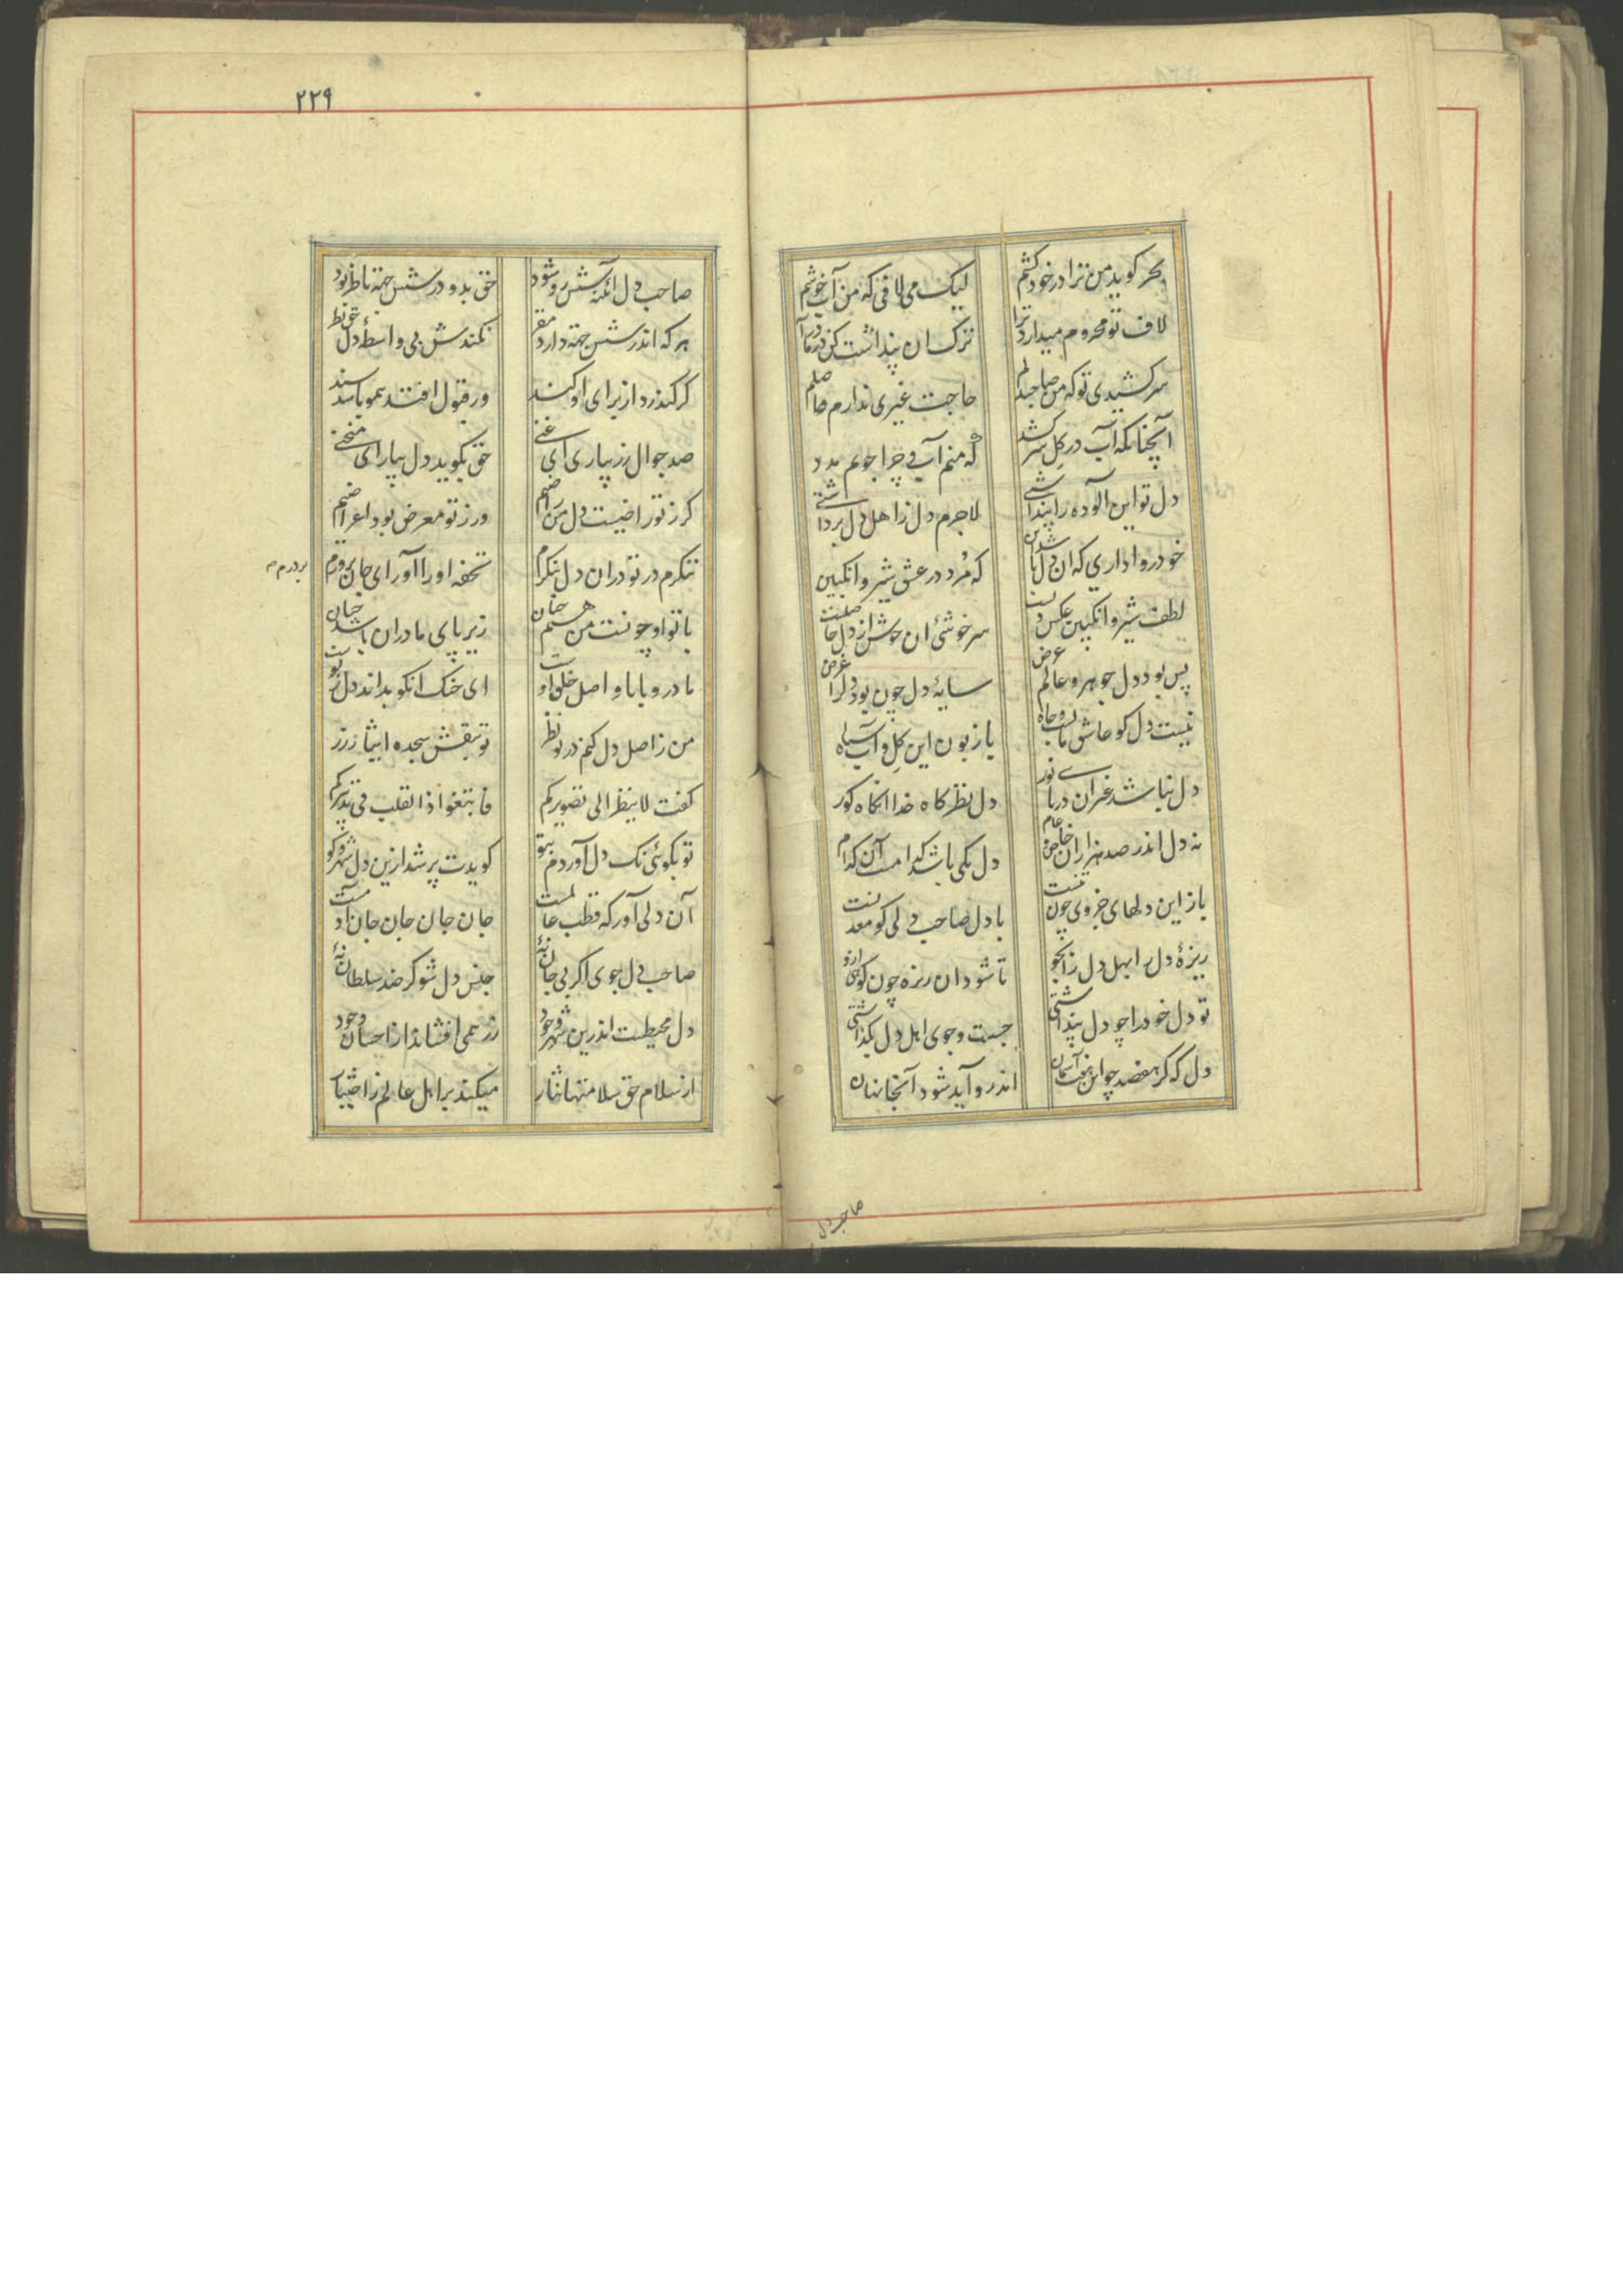 بحر کوید من ترا در خود کشم لیک می لافی که من آب خوشم
لاف تو محروم میدارد ترا ترک ان پنداشت کن در ما درآ
سر کشیدی تو که من صاحبدلم حاجت غیری ندارم حاصلم
آنچنانکه آب در کل سر کشد که منم آب و چرا جویم مدد
دل تو این الوده را پنداشتی لاجرم دل زاهل دل برداشتی
خود روا داری که ان دل باشد این که مُرد در عشق شیر و انکبین
لطف شیر و انکبین عکس دلست سر خوشئ ان خوش از دل حاصلست
پس بود دل جوهر و عالم عرض سایهٔ دل چون بود دلرا غرض
نیست دل کو عاشق مالست و جاه یا زبون این کِل و آب سیاه
دل نباشد غیر ان دریای نور دل نظر کاه خدا انکاه کور
نه دل اندر صد هزاران خاص و عام دل یکی باشد کدامست آن کدام
باز این دلهای جزوی چون تنست با دل صاحب دلی کو معدنست
ریزهٔ دل را بهل دل را بجو تا شود ان ریزه چون کوهی ازو
تو دل خود را چو دل پنداشتی جست و جوی اهل دل بکذاشتی
دل که کر هفصد چو این هفت آسمان اندرو آید شود آنجا نهان
صاحب دل
٢٢٩
صاحب دل آئنه شش رو شود حق بدو در شش جهة ناظر بود
هر که اندر شش جهة دارد مقر نکندش بی واسطهٔ دل حق نظر
کر کند رد از برای او کند ور قبول افتد همو باشد سند
صد جوال زر بیاری ای غنی حق بکوید دل بیار ای منحنی
کر ز تو راضیست دل من راضیم ور ز تو معرض بود اعراضیم
ننکرم در تو دران دل بنکرم تحفه او را آور ای جان بر درم
بر درم
با تو او چونست من هستم چنان زیر پای مادران باشد جنان
مادر و بابا و اصل خلق اوست ای خنک انکو بداند دل ز پوست
تو بکوئی نک دل آوردم بتو کویدت پر شد ازین دل شهر و کو
آن دلی آور که قطب عالمست جان جان جان جان جان اوست
صاحب دل جوی اکر بی جان نهٔ جنس دل شو کر ضد سلطان نهٔ
دل محیطست اندرین شهر وجود زر همی افشاند از احسان و جود
از سلام حق سلامتها نثار میکند بر اهل عالم ز اختیار